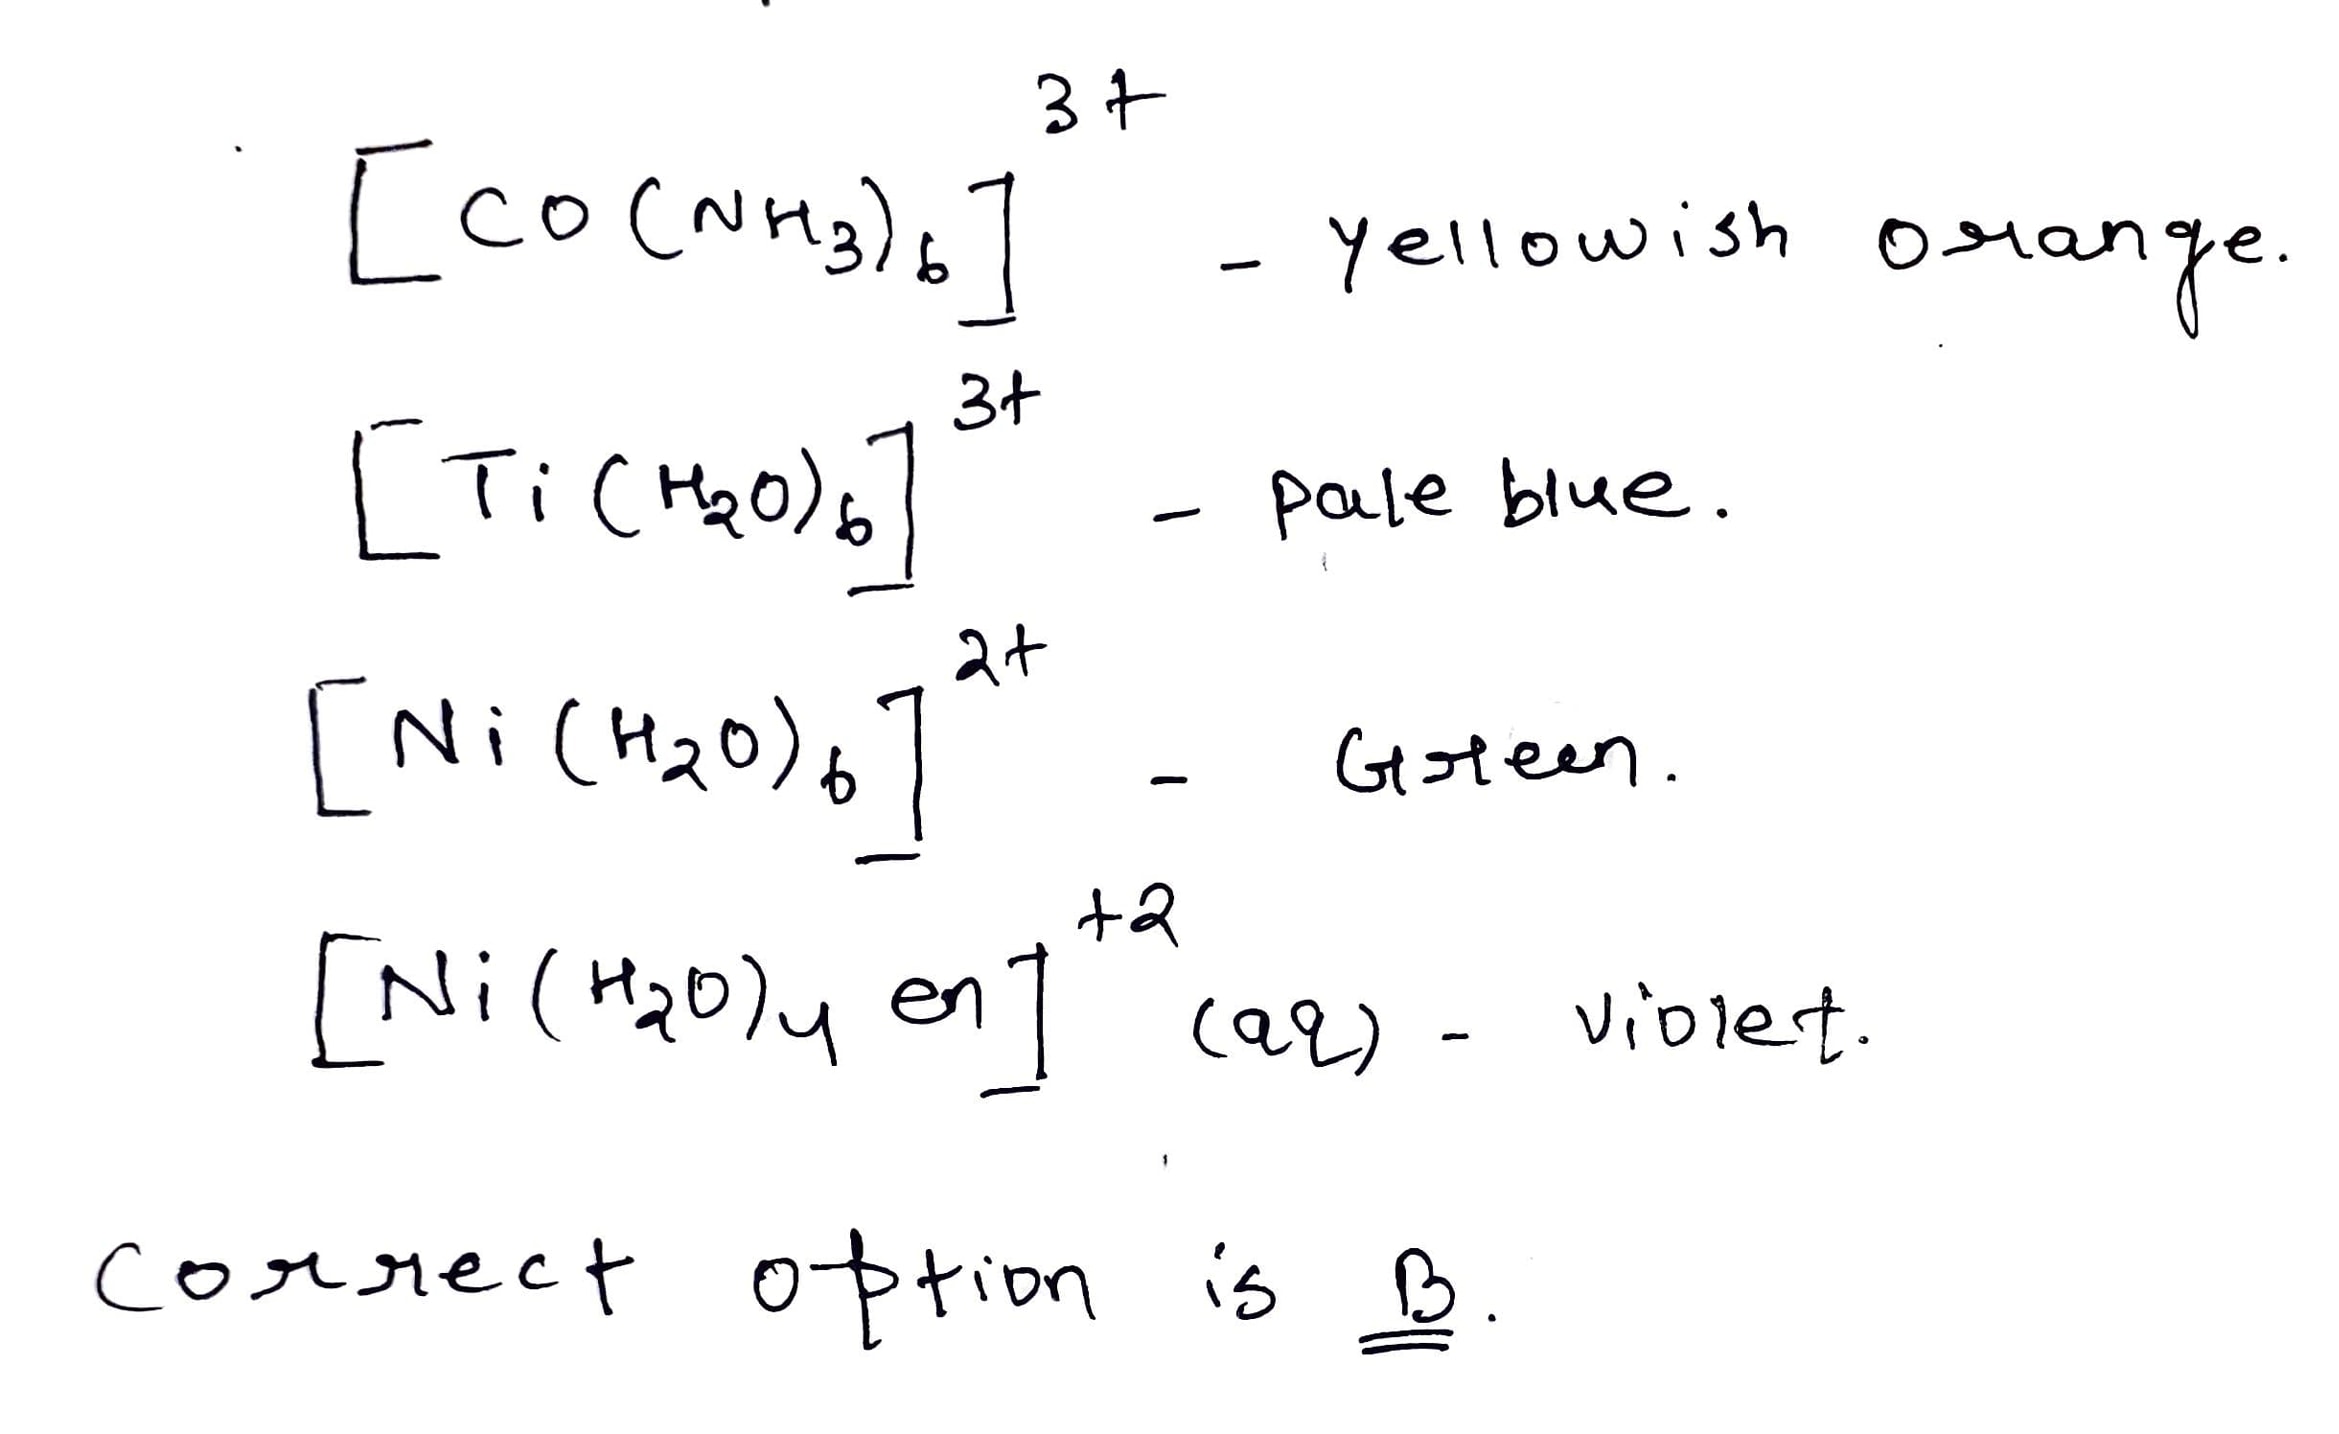 [Co(NH₃)₆]³⁺ - yellowish orange.
[Ti(H₂O)₆]³⁺ - pale blue.
[Ni(H₂O)₆]²⁺ - Green.
[Ni(H₂O)₄ en]⁺² (aq) - violet.
Correct option is B.